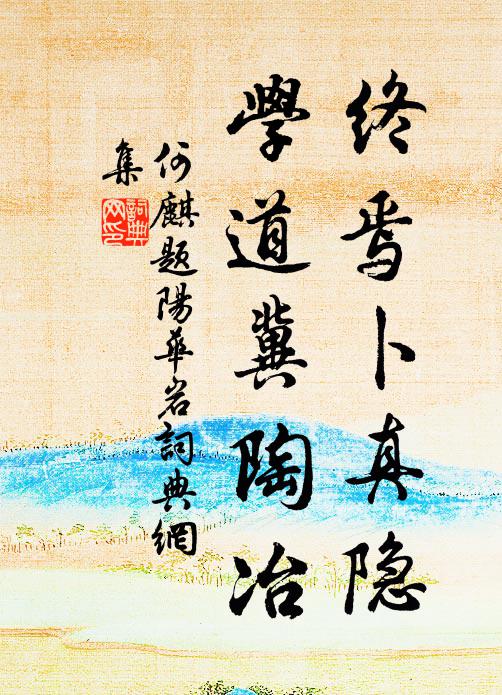 終焉卜真隐
學道冀陶冶
何麒題陽華岩詞典網
集
詞典
网印